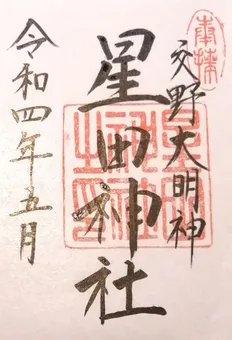 奉拝
交野大明神
星田神社
令和四年五月